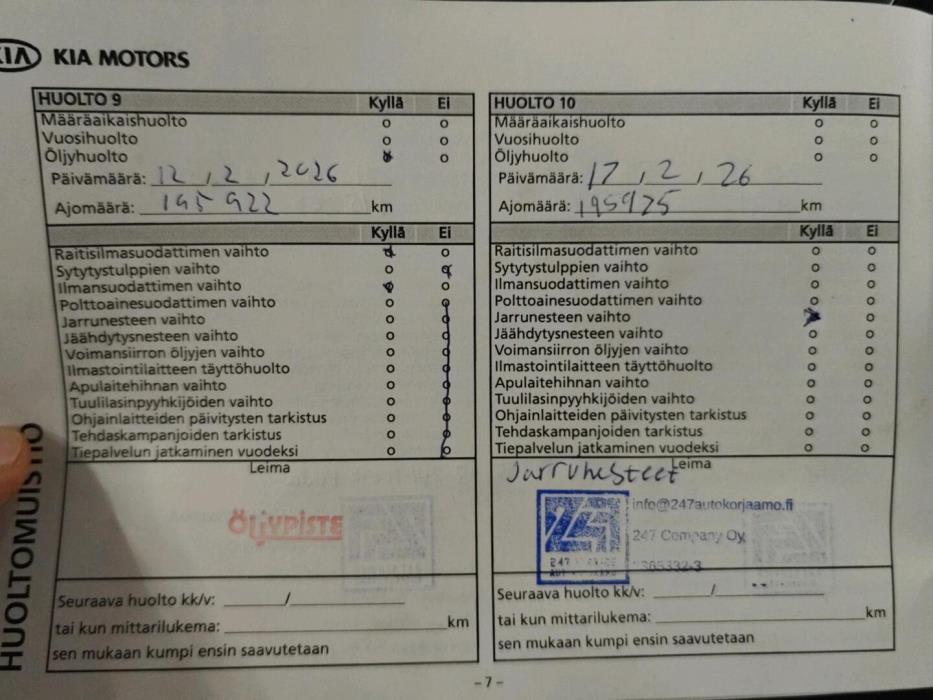 KIA KIA MOTORS
HUOLTO 9 Kyllä Ei
Määräaikaishuolto
Vuosihuolto
Öljyhuolto
Päivämäärä: 12, 2, 2026
Ajomäärä: 195 922 km
Kyllä Ei
Raitisilmasuodattimen vaihto
Sytytystulppien vaihto
Ilmansuodattimen vaihto
Polttoainesuodattimen vaihto
Jarrunesteen vaihto
Jäähdytysnesteen vaihto
Voimansiirron öljyjen vaihto
Ilmastointilaitteen täyttöhuolto
Apulaitehihnan vaihto
Tuulilasinpyyhkijöiden vaihto
Ohjainlaitteiden päivitysten tarkistus
Tehdaskampanjoiden tarkistus
Tiepalvelun jatkaminen vuodeksi
Leima
ÖLJYPISTE
Seuraava huolto kk/v: /
tai kun mittarilukema: km
sen mukaan kumpi ensin saavutetaan
HUOLTO 10 Kyllä Ei
Määräaikaishuolto
Vuosihuolto
Öljyhuolto
Päivämäärä: 17, 2, 26
Ajomäärä: 195925 km
Kyllä Ei
Raitisilmasuodattimen vaihto
Sytytystulppien vaihto
Ilmansuodattimen vaihto
Polttoainesuodattimen vaihto
Jarrunesteen vaihto
Jäähdytysnesteen vaihto
Voimansiirron öljyjen vaihto
Ilmastointilaitteen täyttöhuolto
Apulaitehihnan vaihto
Tuulilasinpyyhkijöiden vaihto
Ohjainlaitteiden päivitysten tarkistus
Tehdaskampanjoiden tarkistus
Tiepalvelun jatkaminen vuodeksi
Leima
Jarrunesteet
info@247autokorjaamo.fi
247 Company Oy
247
Seuraava huolto kk/v: /
tai kun mittarilukema: km
sen mukaan kumpi ensin saavutetaan
HUOLTOMUISTIO
- 7 -